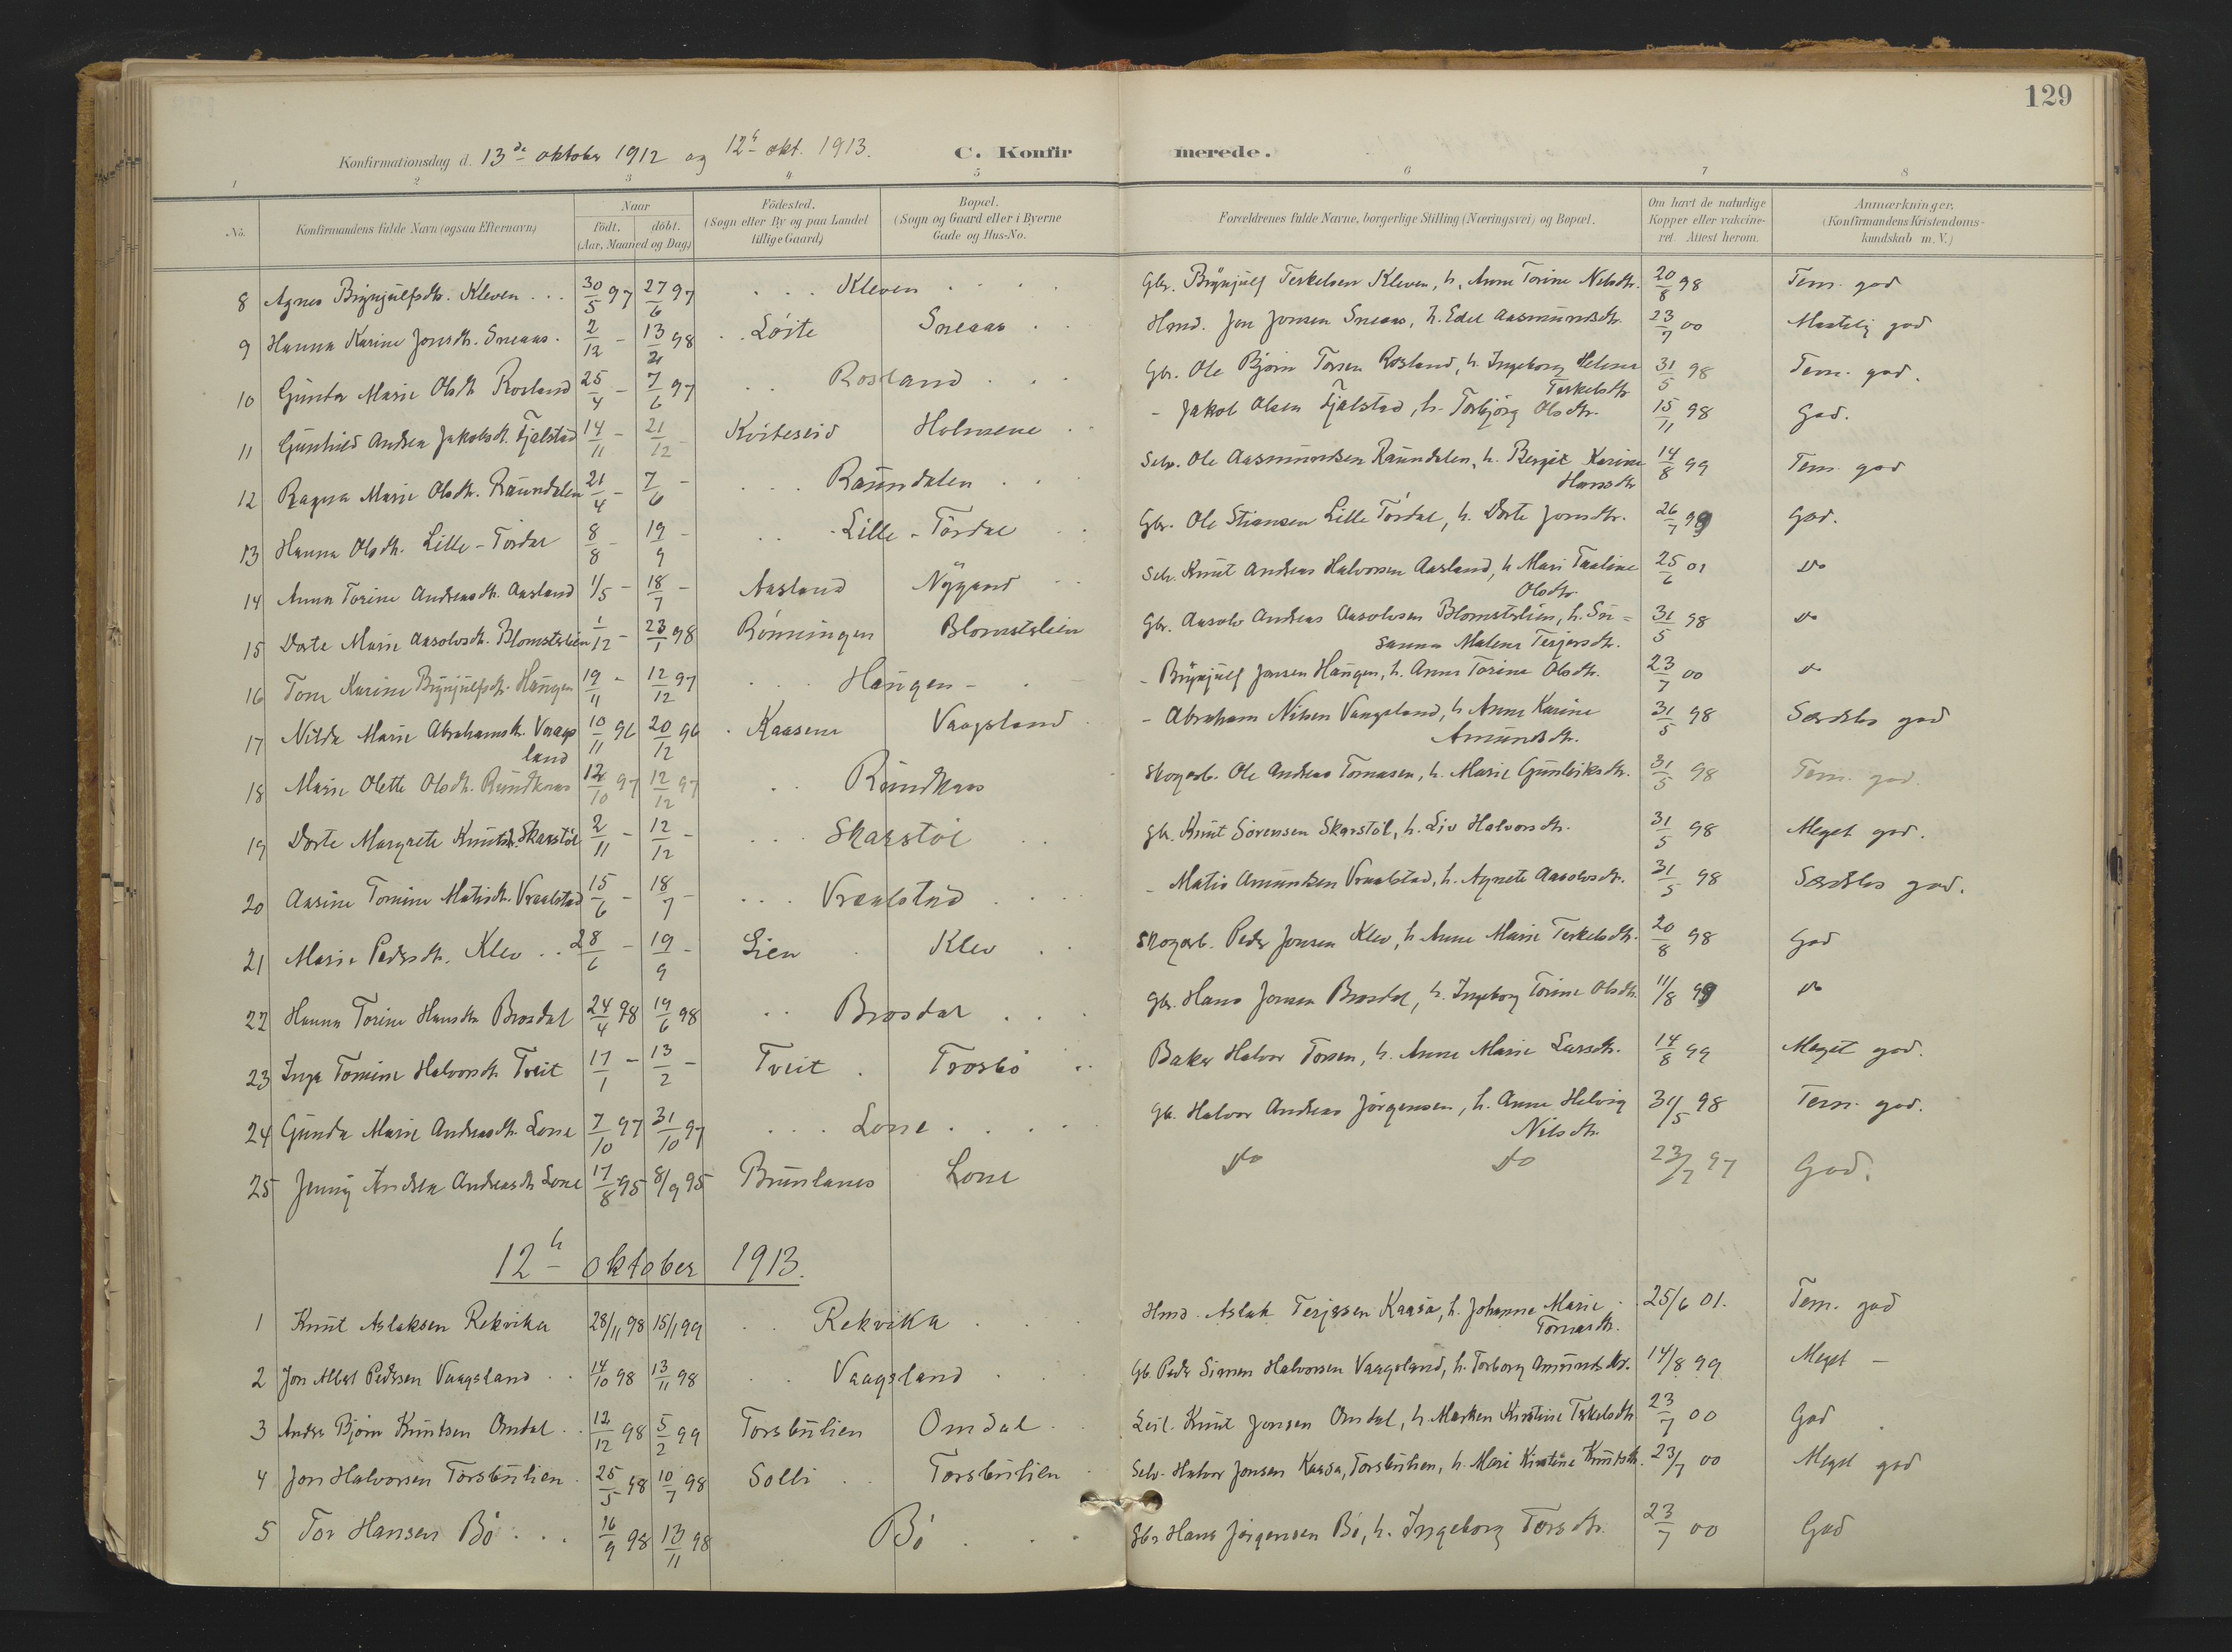 129
Konfirmationsdag d. 13de oktober 1912 og 12te okt. 1913. C. Konfirmerede.
1 2 3 4 5 6 7 8
No. Konfirmandens fulde Navn (ogsaa Efternavn) Naar født. døbt. (Aar, Maaned og Dag) Fødested. (Sogn eller By og paa Landet tillige Gaard) Bopæl. (Sogn og Gaard eller i Byerne Gade og Hus-No. Forældrenes fulde Navne, borgerlige Stilling (Næringsvei) og Bopæl. Om havt de naturlige Kopper eller vakcineret. Attest herom. Anmærkninger. (Konfirmandens Kristendomskundskab m. V.)
8 Agnes Brynjulfsdtr. Kleven . . . 30/5 97 27/6 97 . . . Kleven . . . . Gbr. Brynjulf Terkelsen Kleven, h. Anne Torine Nilsdtr. 20/8 98 Tem. god
9 Hanna Karine Jonsdtr. Sneaas . 2/12 - 13/2 98 . . Löite Sneaas . . Hmd. Jon Jonsen Sneaas, h. Edel Aasmundsdtr. 23/7 00 Maatelig god
10 Gunda Marie Olsdtr Rosland 25/4 - 7/6 97 . . Rosland . . . Gbr. Ole Bjørn Torsen Rosland, h. Ingeborg Helene
Terkelsdtr 31/5 98 Tem. god.
11 Gunhild Andrea Jakobsdtr. Fjalstad 14/11 - 21/12 - Kviteseid Holmene . . - Jakob Olsen Fjalstad, h. Torbjörg Olsdtr. 15/11 98 God.
12 Ragna Marie Olsdtr. Raundalen 21/4 - 7/6 - . . . Raundalen . . . Selv. Ole Aasmundsen Raundalen, h. Bergit Karine
Hansdtr 14/8 99 Tem. god
13 Hanna Olsdtr. Lille-Tördal 8/8 - 19/9 - . . . Lille-Tördal . . Gbr. Ole Stiansen Lille Tördal, h. Dorte Jonsdtr. 26/7 99 God.
14 Anna Torine Andreasdtr. Aasland 1/5 - 18/7 - Aasland Nygaard . . Selv. Knut Andreas Halvorsen Aasland, h. Mari Taaline
Olsdtr 25/6 01 do
15 Dorte Marie Aasolvsdtr. Blomsterlien 1/12 - 23/1 98 Rönningen Blomsterlien Gbr. Aasolv Andreas Aasolvsen Blomsterlien, h. Su-
sanna Malene Terjesdtr. 31/5 98 do
16 Tone Karine Brynjulfsdtr. Haugen 19/11 - 12/12 97 . . . Haugen - . . - Brynjulf Jonsen Haugen, h. Anne Torine Olsdtr. 23/7 00 do
17 Nilda Marie Abrahamsdtr. Vaags
land 10/11 96 20/12 96 . Kaasene Vaagsland . - Abraham Nilsen Vaagsland, h. Anne Karine
Amundsdtr. 31/5 98 Særdeles god
18 Marie Olette Olsdtr. Rundkaas 12/10 97 12/12 97 . . Rundkaas Skogarb. Ole Andreas Tomasen, h. Marie Gunleiksdtr. 31/5 98 Tem. god.
19 Dorte Margrete Knutsd. Skarstöl 2/11 - 12/12 - . . . Skarstöl . . Gbr. Knut Sörensen Skarstöl, h. Liv Halvorsdtr. 31/5 98 Meget god.
20 Aasine Tomine Matisdtr. Vraalstad 15/6 - 18/7 - . . . Vraalstad . . . - Matis Amundsen Vraalstad, h. Agnete Aasolvsdtr. 31/5 98 Særdeles god.
21 Marie Pedersdtr. Klev . . 28/6 - 19/9 - Lien . Klev . . Skogarb. Peder Jonsen Klev, h. Anne Marie Terkelsdtr. 20/8 98 God
22 Hanna Torine Hansdtr Brosdal 24/4 98 19/6 98 . . Brosdal . . . Gbr. Hans Jonsen Brosdal, h. Ingeborg Torine Olsdtr. 11/8 99 do
23 Inga Tomine Halvorsdtr. Tveit 17/1 - 13/2 - Tveit . Trosbö . . Baker Halvor Torsen, h. Anne Marie Larsdtr. 14/8 99 Meget god.
24 Gunda Marie Andreasdtr. Lone 7/10 97 31/10 97 . . . Lone . . . . Gb. Halvor Andreas Jörgensen, h. Anne Helvig
Nilsdtr. 31/5 98 Tem. god.
25 Jenny Andrea Andreasdtr Lone 17/8 95 8/9 95 Brunlanes Lone do do 23/7 97 God.
12te oktober 1913.
1 Knut Aslaksen Rekvika 28/11 98 15/1 99 . . Rekvika . . . Hmd. Aslak Terjesen Kaasa, h. Johanne Marie
Tomasdtr. 25/6 01. Tem. god
2 Jon Albert Pedersen Vaagsland . . 14/10 98 13/11 98 . . Vaagsland . . . Gb. Peder Simen Halvorsen Vaagsland, h. Torborg Amundsdtr. 14/8 99 Meget -
3 Anders Bjørn Knutsen Omdal . . 12/12 98 5/2 99 Torsbulien Omdal . Leil. Knut Jonsen Omdal, h. Marken Kirstine Terkelsdtr 23/7 00 God .
4 Jon Halvorsen Torsbulien . 25/5 98 10/7 98 Solli . . Torsbulien . Selv. Halvor Jonsen Kaasa, Torsbulien, h. Mari Kirstine Knutsdtr. 23/7 00 Meget god
5 Tor Hansen Bö . . . 16/9 98 13/11 98 Bö . . . Gbr Hans Jörgensen Bö, h. Ingeborg Torsdtr. 23/7 00 God